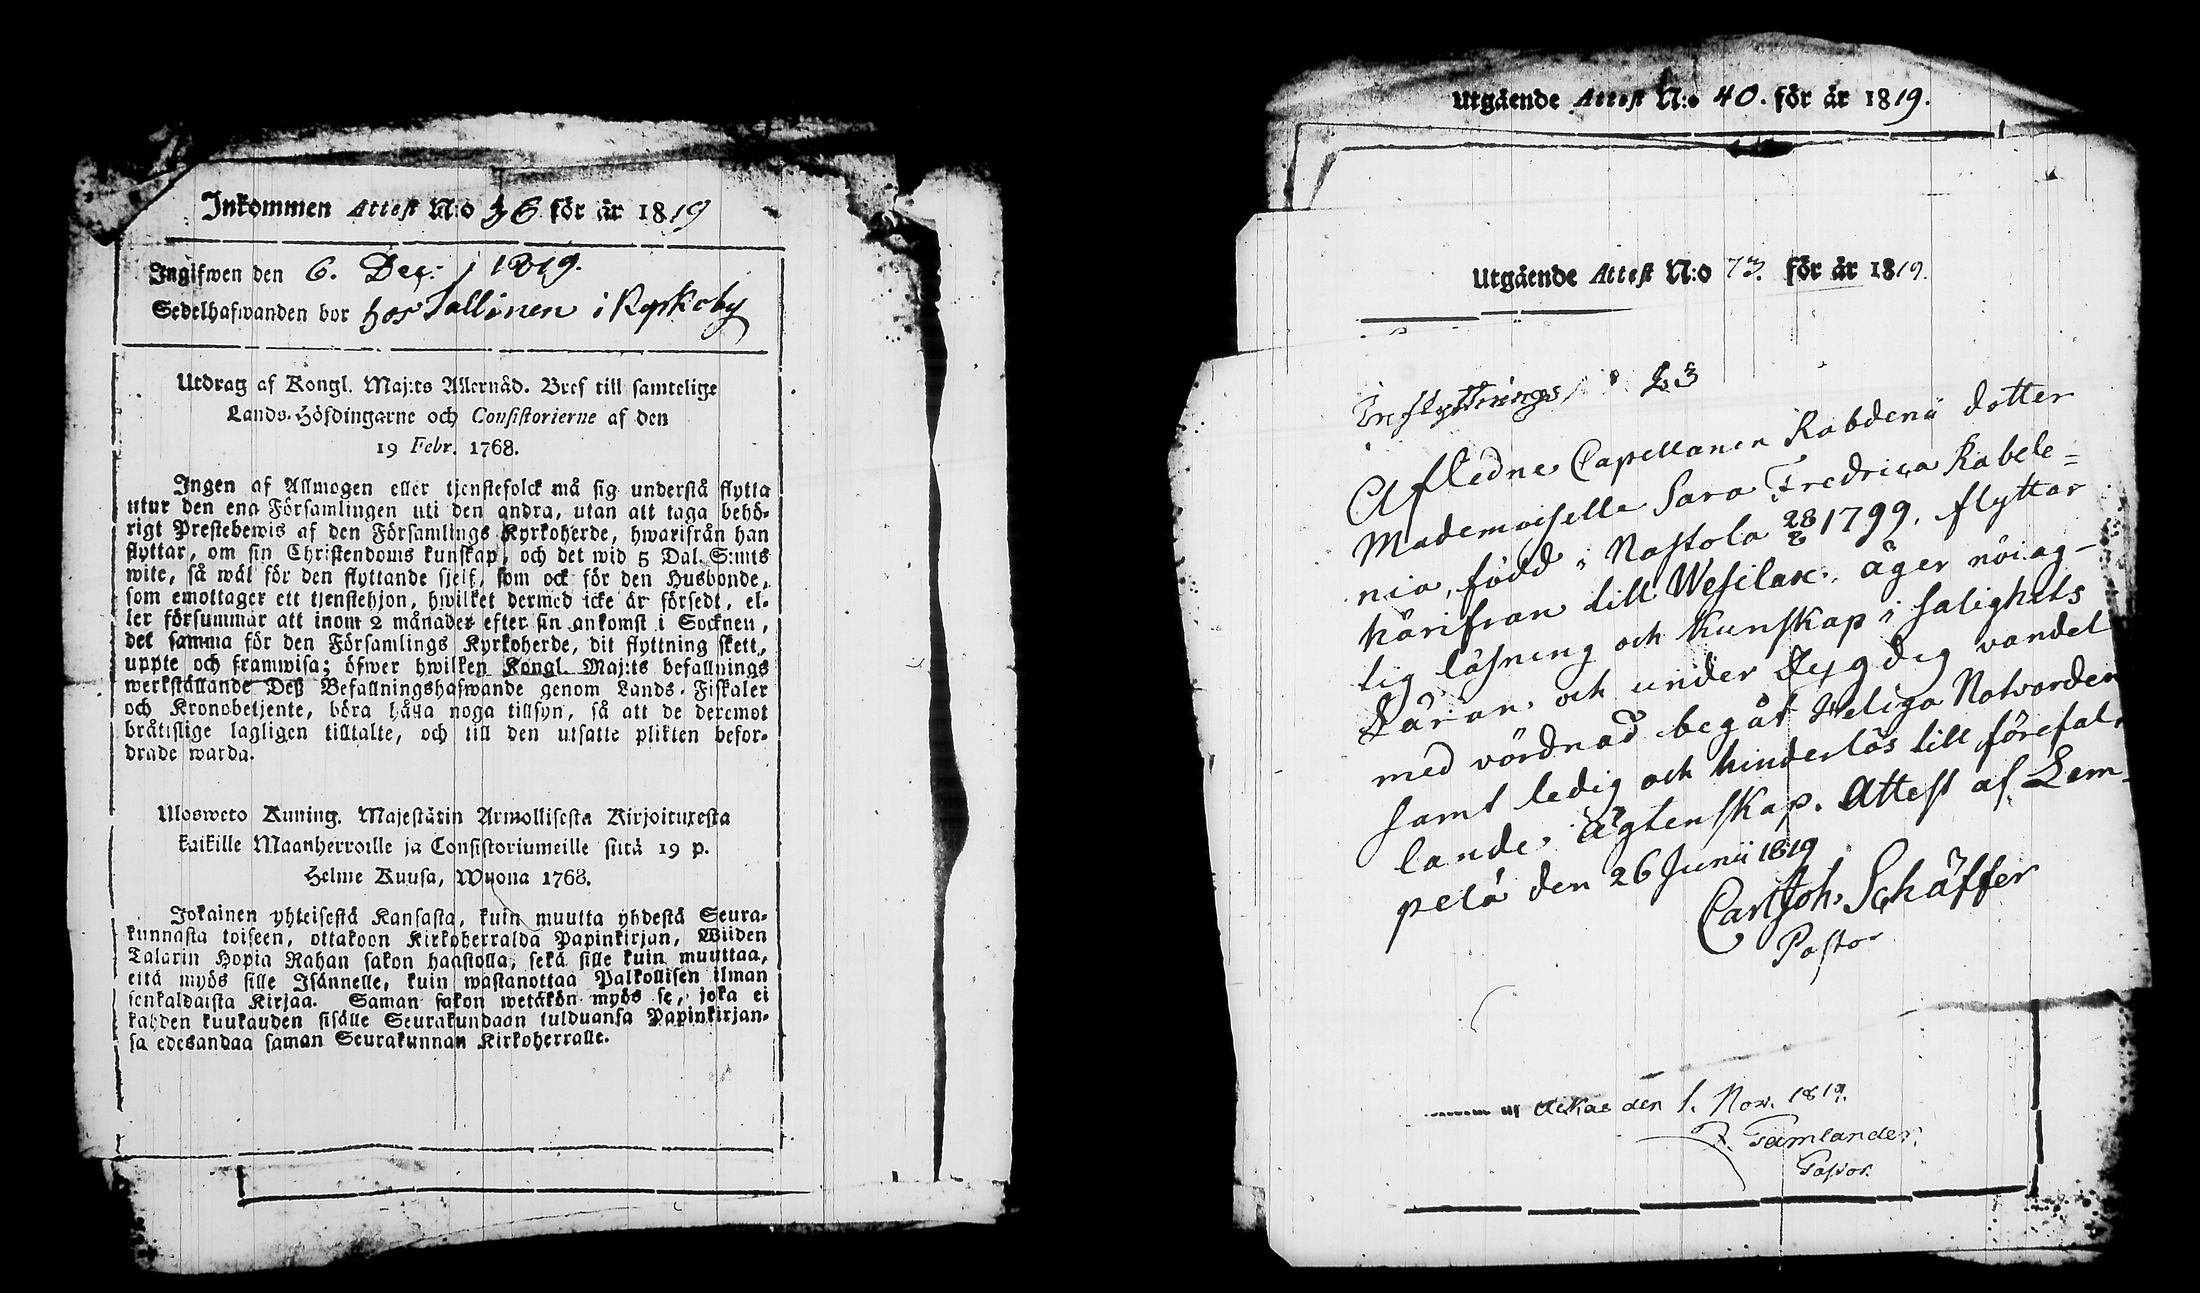 Inkommen Attest N:o 36 för år 1819
Ingifwen den 6. Dec: 1819.
Sedelhafwanden bor hos Sallinen i Kyrkoby
Utdrag af Kongl. Maj:ts Allernåd. Bref till samtelige
Lands-Höfdingarne och Consistorierne af den
19 Febr. 1768.
Ingen af Allmogen eller tjenstefolck må sig understå flytta
utur den ena Församlingen uti den andra, utan att taga behö-
rigt Prestebewis af den Församlings Kyrkoherde, hwarifrån han
flyttar, om sin Christendoms kunskap, och det wid 5 Dal. S:mts
wite, så wäl för den flyttande sjelf, som ock för den Husbonde,
som emottager ett tjenstehjon, hwilket dermed icke är försedt, el-
ler försummar att inom 2 månader efter sin ankomst i Socknen,
det samma för den Församlings Kyrkoherde, dit flyttning skett,
uppte och framwisa; öfwer hwilken Kongl. Maj:ts befallnings
werkställande Deß Befallningshafwande genom Lands-Fiskaler
och Kronobetjente, böra hålla noga tillsyn, så att de deremot
bråtislige lagligen tilltalte, och till den utsatte plikten befor-
drade warda.
Ulosweto Kuning. Majestätin Armollisesta Kirjoituxesta
kaikille Maanherroille ja Consistoriumeille siitä 19 p.
Helme Kuusa, Wuona 1768.
Jokainen yhteisestä Kansasta, kuin muutta yhdestä Seura-
kunnasta toiseen, ottakoon Kirkoherralda Papinkirjan, Wiiden
Talarin Hopia Rahan sakon haastolla, sekä sille kuin muuttaa,
että myös sille Isännelle, kuin wastanottaa Palkollisen ilman
senkaldaista Kirjaa. Saman sakon wetäkön myös se, joka ei
kahden kuukauden sisälle Seurakundaan tulduansa Papinkirjan-
sa edesandaa saman Seurakunnan Kirkoherralle.
Utgående Attest N:o 40. för år 1819.
Utgående Attest N:o 73. för år 1819.
Inflyttnings
Afledne Capellanen Rabdenii dotter
Mademoiselle Sara Fredrica Rabele=
nia, född i Nastola 28/8 1799, flyttar
härifrån till Wesilax, äger nöiag-
lig läsning och kunskap i salighets
Läran, och under dygdig vandel
med vördnad begåt Heliga Natvarden
samt ledig och hinderlös till förefal-
lande ägtenskap. Attest af Lem-
pelä den 26 Junii 1819
Carl Joh. Schäffer
Pastor
den 1. Nov. 1819.
Tamlander.
Pastor.